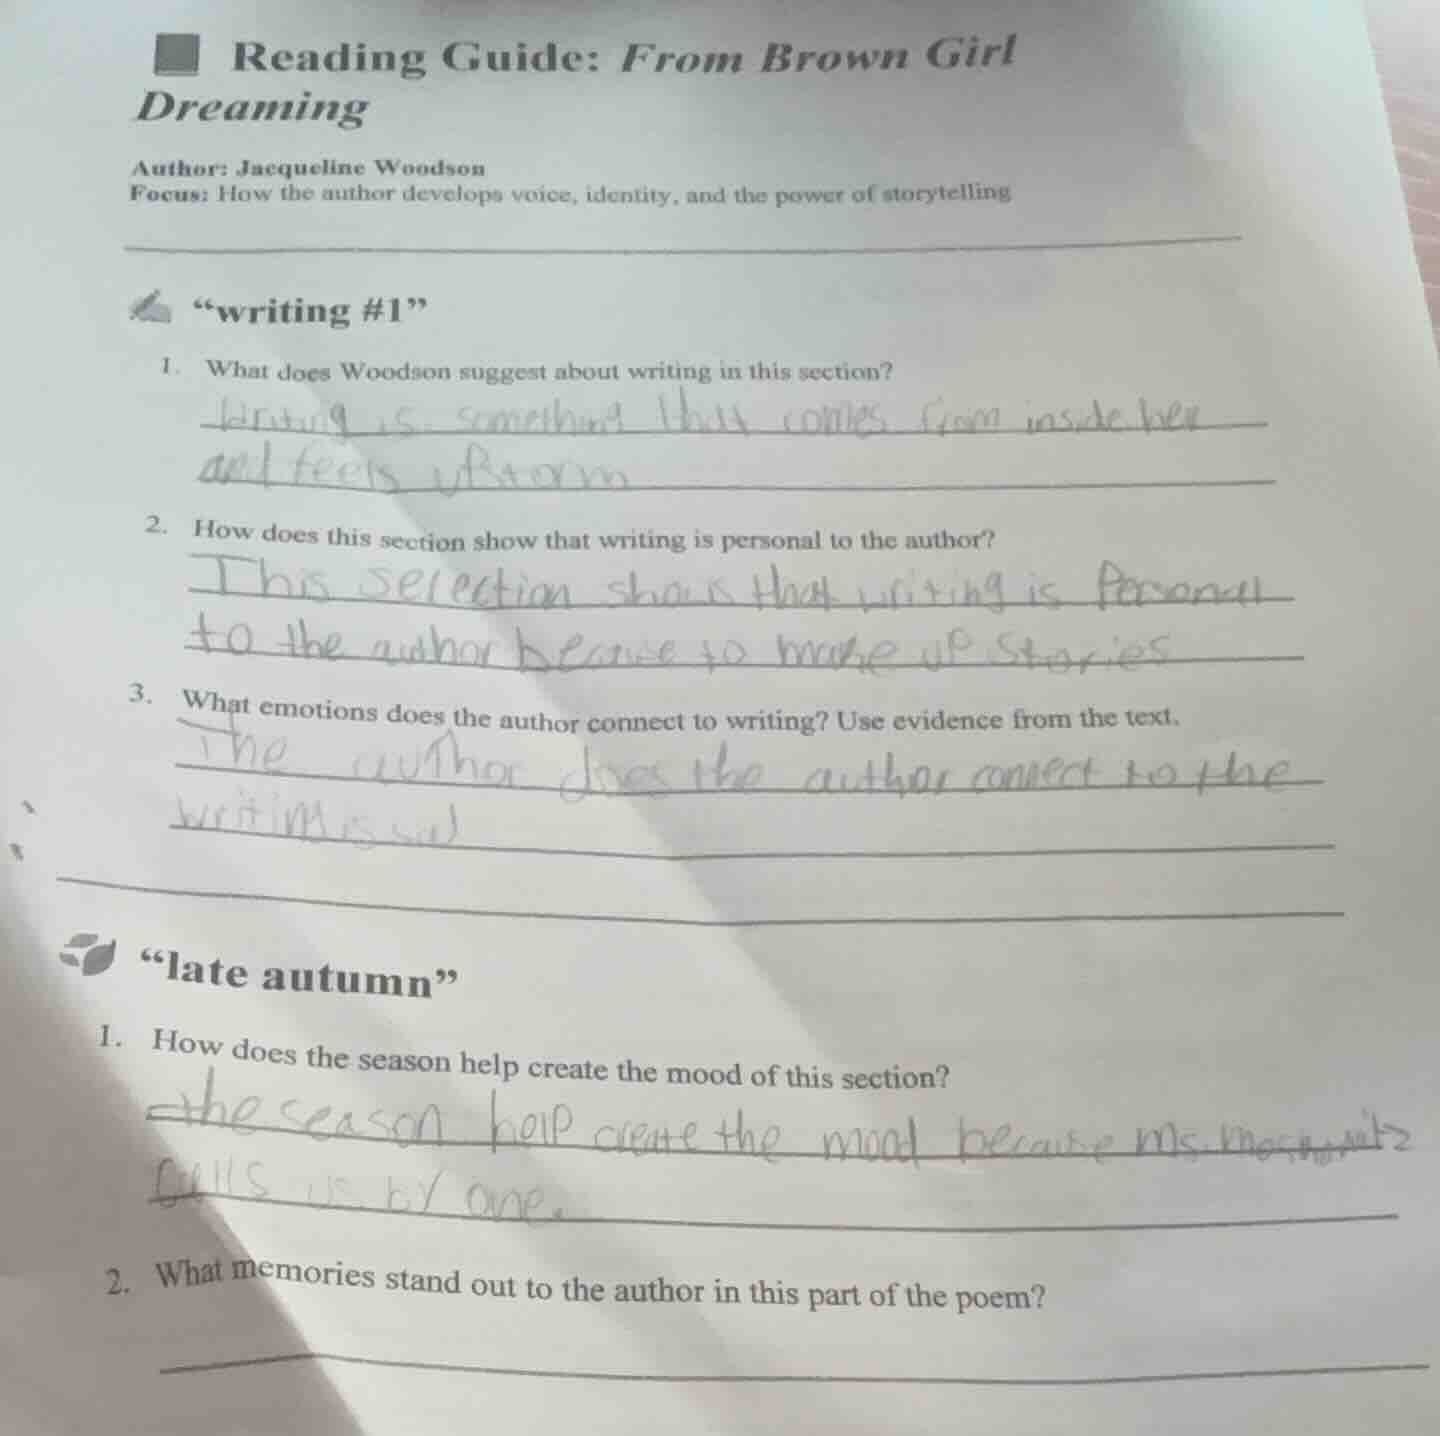 Reading Guide: From Brown Girl
Dreaming
Author: Jacqueline Woodson
Focus: How the author develops voice, identity, and the power of storytelling
“writing #1”
1. What does Woodson suggest about writing in this section?
Writing is something that comes from inside her
and feels
2. How does this section show that writing is personal to the author?
This selection shows that writing is Personal
to the author because to make up stories
3. What emotions does the author connect to writing? Use evidence from the text.
The author does the author connect to the
is
“late autumn”
1. How does the season help create the mood of this section?
the season help create the mood because ms.
calls us by one.
2. What memories stand out to the author in this part of the poem?